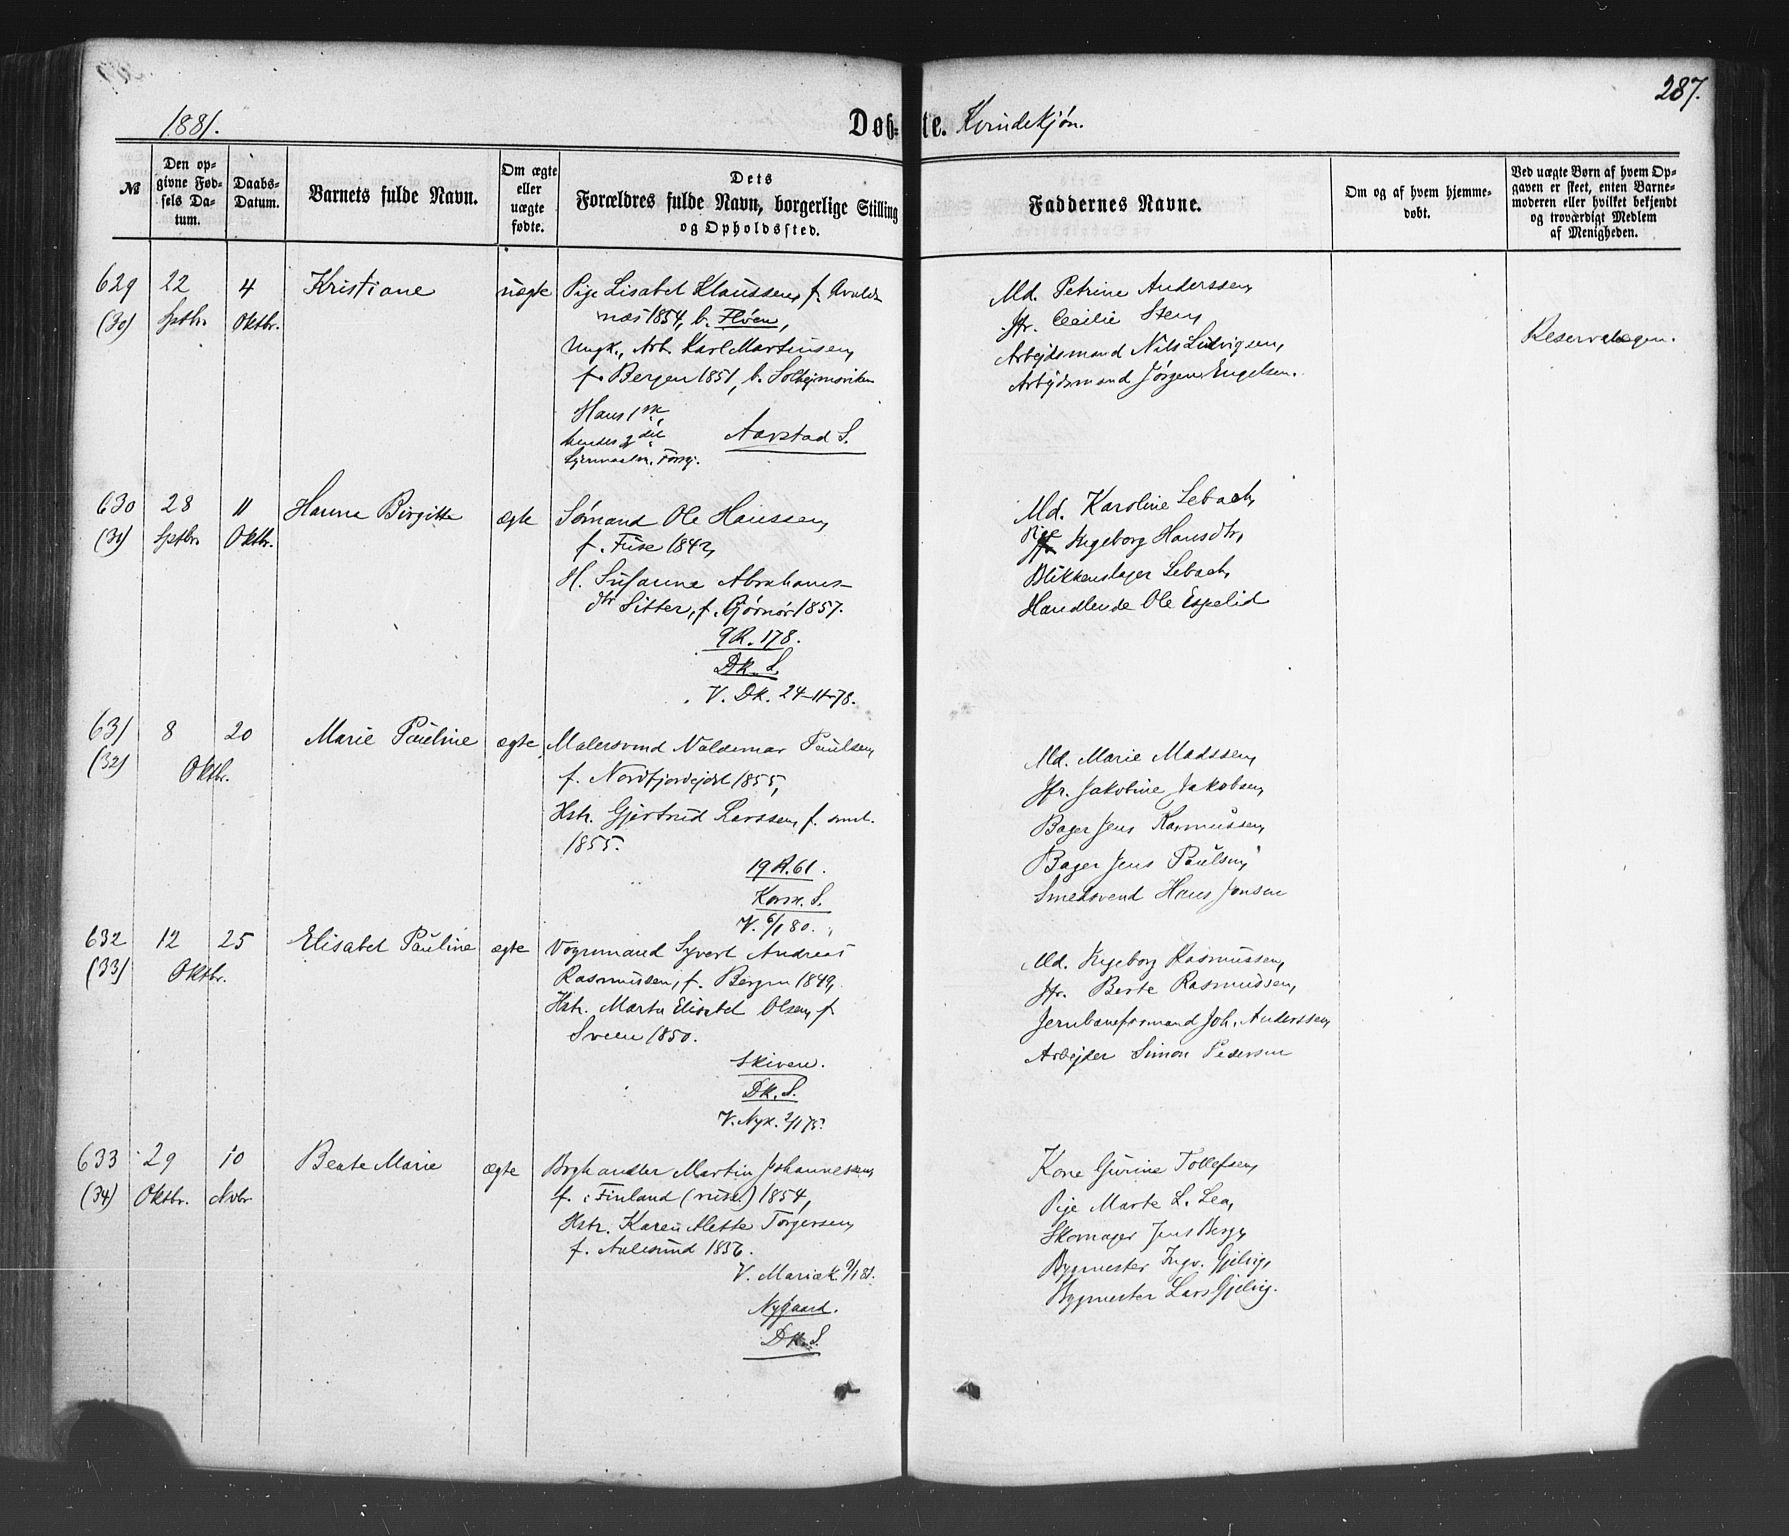 287.
1881.
Døb-te. Kvindekjøn.
№
Den opgivne Fødsels Datum.
Daabs-Datum.
Barnets fulde Navn.
Om ægte eller uægte fødte.
Dets Forældres fulde Navn, borgerlige Stilling og Opholdssted.
Faddernes Navne.
Om og af hvem hjemmedøbt.
Ved uægte Børn af hvem Opgaven er skeet, enten Barnemoderen eller hvilket bekjendt og troværdigt Medlem af Menigheden.
629 22 4 Kristiane uægte Pige Lisabet Klaussen, f.
(30) Sptbr. Oktbr. 1854, b. Fløen,
Ungk., Arb. Karl Martinsen,
f. Bergen 1851, b. Solheimsviken
Hans 1ste,
hendes 2det
Aarstad S.
Md. Petrine Anderssen,
Jfr. Cecilie Steen,
Arbejdsmand Nils Ludvigsen,
Arbejdsmand Jørgen Engelsen.
630 28 11 Hanna Birgitte ægte Sømand Ole Hanssen,
(31) Sptbr. Oktbr. f. Fuse 1842,
H. Susanne Abrahams-
dtr Sitter, f. 1857.
9 R. 178.
Dk. S.
V. Dk. 24-11-78.
Md. Karoline Lebach,
Pige Ingeborg Hansdtr,
Blikkenslager Lebach,
Handlende Ole Espelid
631 8 20 Marie Pauline ægte Malersvend Valdemar Paulsen,
(32) Oktbr. f. Nordfjordejdet 1855,
Hstr. Gjertrud Larssen, f. smst.
1855.
19 R. 61.
Korsk. S.
V. 6/1 80.
Md. Marie Madssen,
Jfr. Jakobine Jakobsen,
Bager Jens Rasmussen,
Bager Jens Paulsen,
Smedsvend Hans Jonsen
632 12 25 Elisabet Pauline ægte Vognmand Syvert Andreas
(33) Oktbr. Rasmussen, f. Bergen 1849,
Hstr. Marta Elisabet Olsen, f.
Sveen 1850.
Skiven.
Dk. S.
V. Nyk. 2/1 75.
Md. Ingeborg Rasmussen,
Jfr. Berte Rasmussen,
Jernbaneformand Joh. Anderssen,
Arbejder Simon Pedersen
633 29 10 Beate Marie ægte Boghandler Martin Johannessen,
(34) Oktbr. Nvbr. f. i Finland (russ.) 1854,
Hstr. Karen Mette Torgersen,
f. Aalesund 1856.
V. Mariak. 9/1 81.
Nygaard.
Dk. S.
Kone Gurine Tollefsen,
Pige Marte L. Lea,
Skomager Jens Berge,
Bygmester Ingv. Gjelvig,
Bygmester Lars Gjelvig.